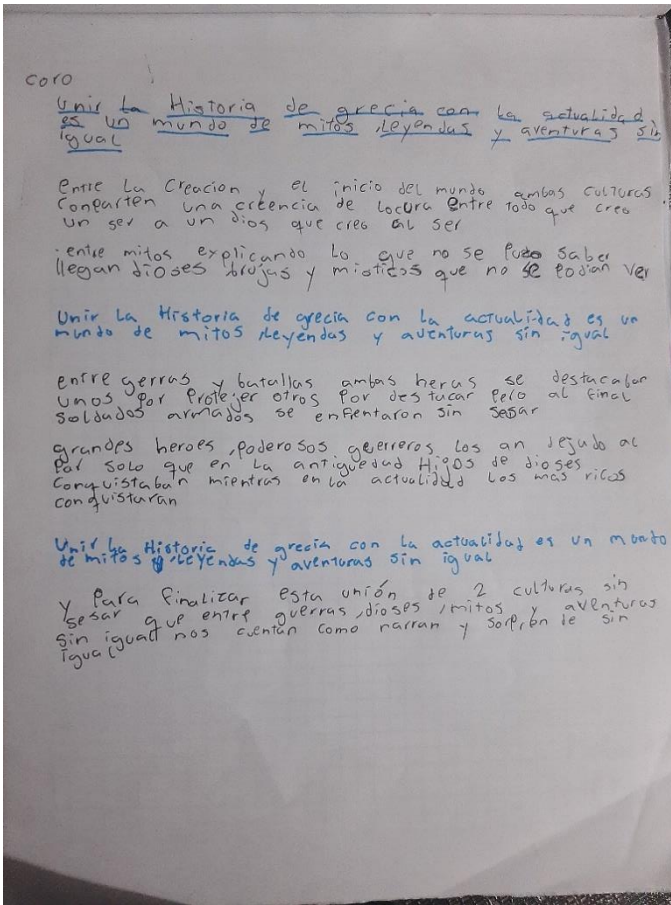 coro
Unir la Historia de grecia con la actualidad
es un mundo de mitos, leyendas y aventuras sin
igual
entre La Creacion y el inicio del mundo ambas culturas
Conparten una creencia de locura entre todo que creo
un ser a un dios que creo al ser
entre mitos explicando Lo que no se pudo saber
llegan dioses brujas y misticos que no se podian ver
Unir La Historia de grecia con la actualidad es un
mundo de mitos, leyendas y aventuras sin igual
entre gerras y batallas ambas heras se destacaban
unos por Protejer otros por destacar pero al final
soldados armados se enfentaron sin sesar
grandes heroes, poderosos gerreros los an dejado al
par solo que en La antiguedad Hijos de dioses
conquistaban mientras en la actualidad Los mas ricos
conquistaran
Unir la Historia de grecia con la actualidad es un mundo
de mitos, leyendas y aventuras sin igual
y Para finalizar esta unión de 2 culturas sin
sesar que entre guerras, dioses, mitos y aventuras
sin igual nos cuentan como narran y sorprende sin
igual